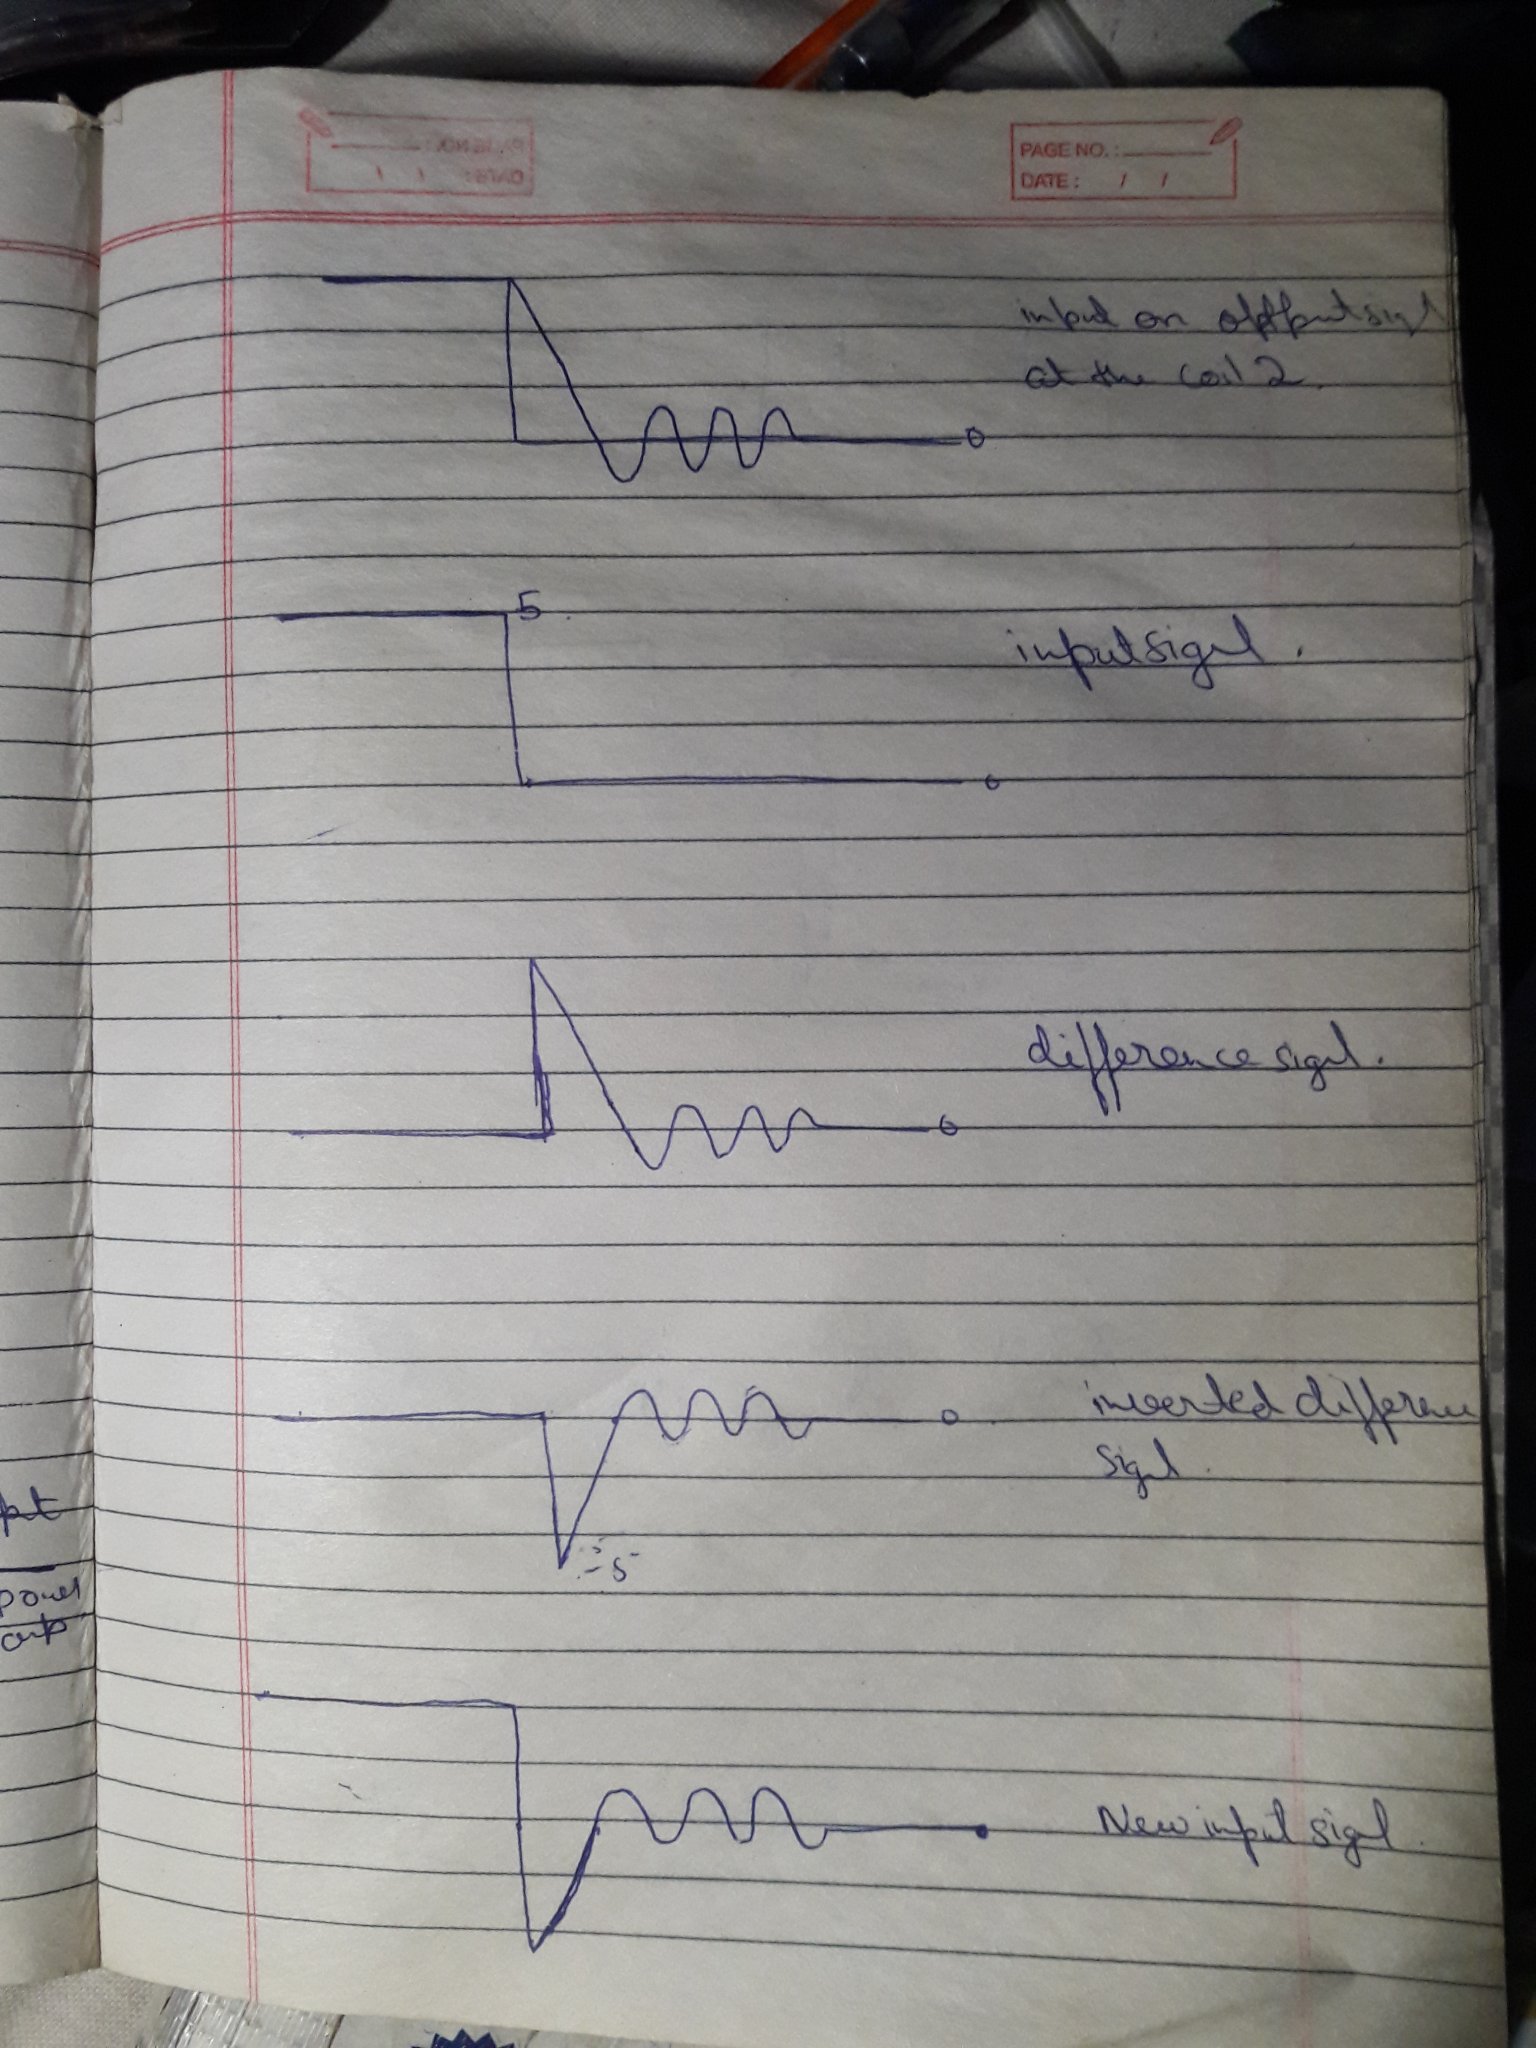 PAGE NO. :
DATE : / /
input on output sigl
at the coil 2.
0
5
input sigl.
0
difference sigl.
0
0
inverted difference
sigl.
-5
pt
power
New input sigl.